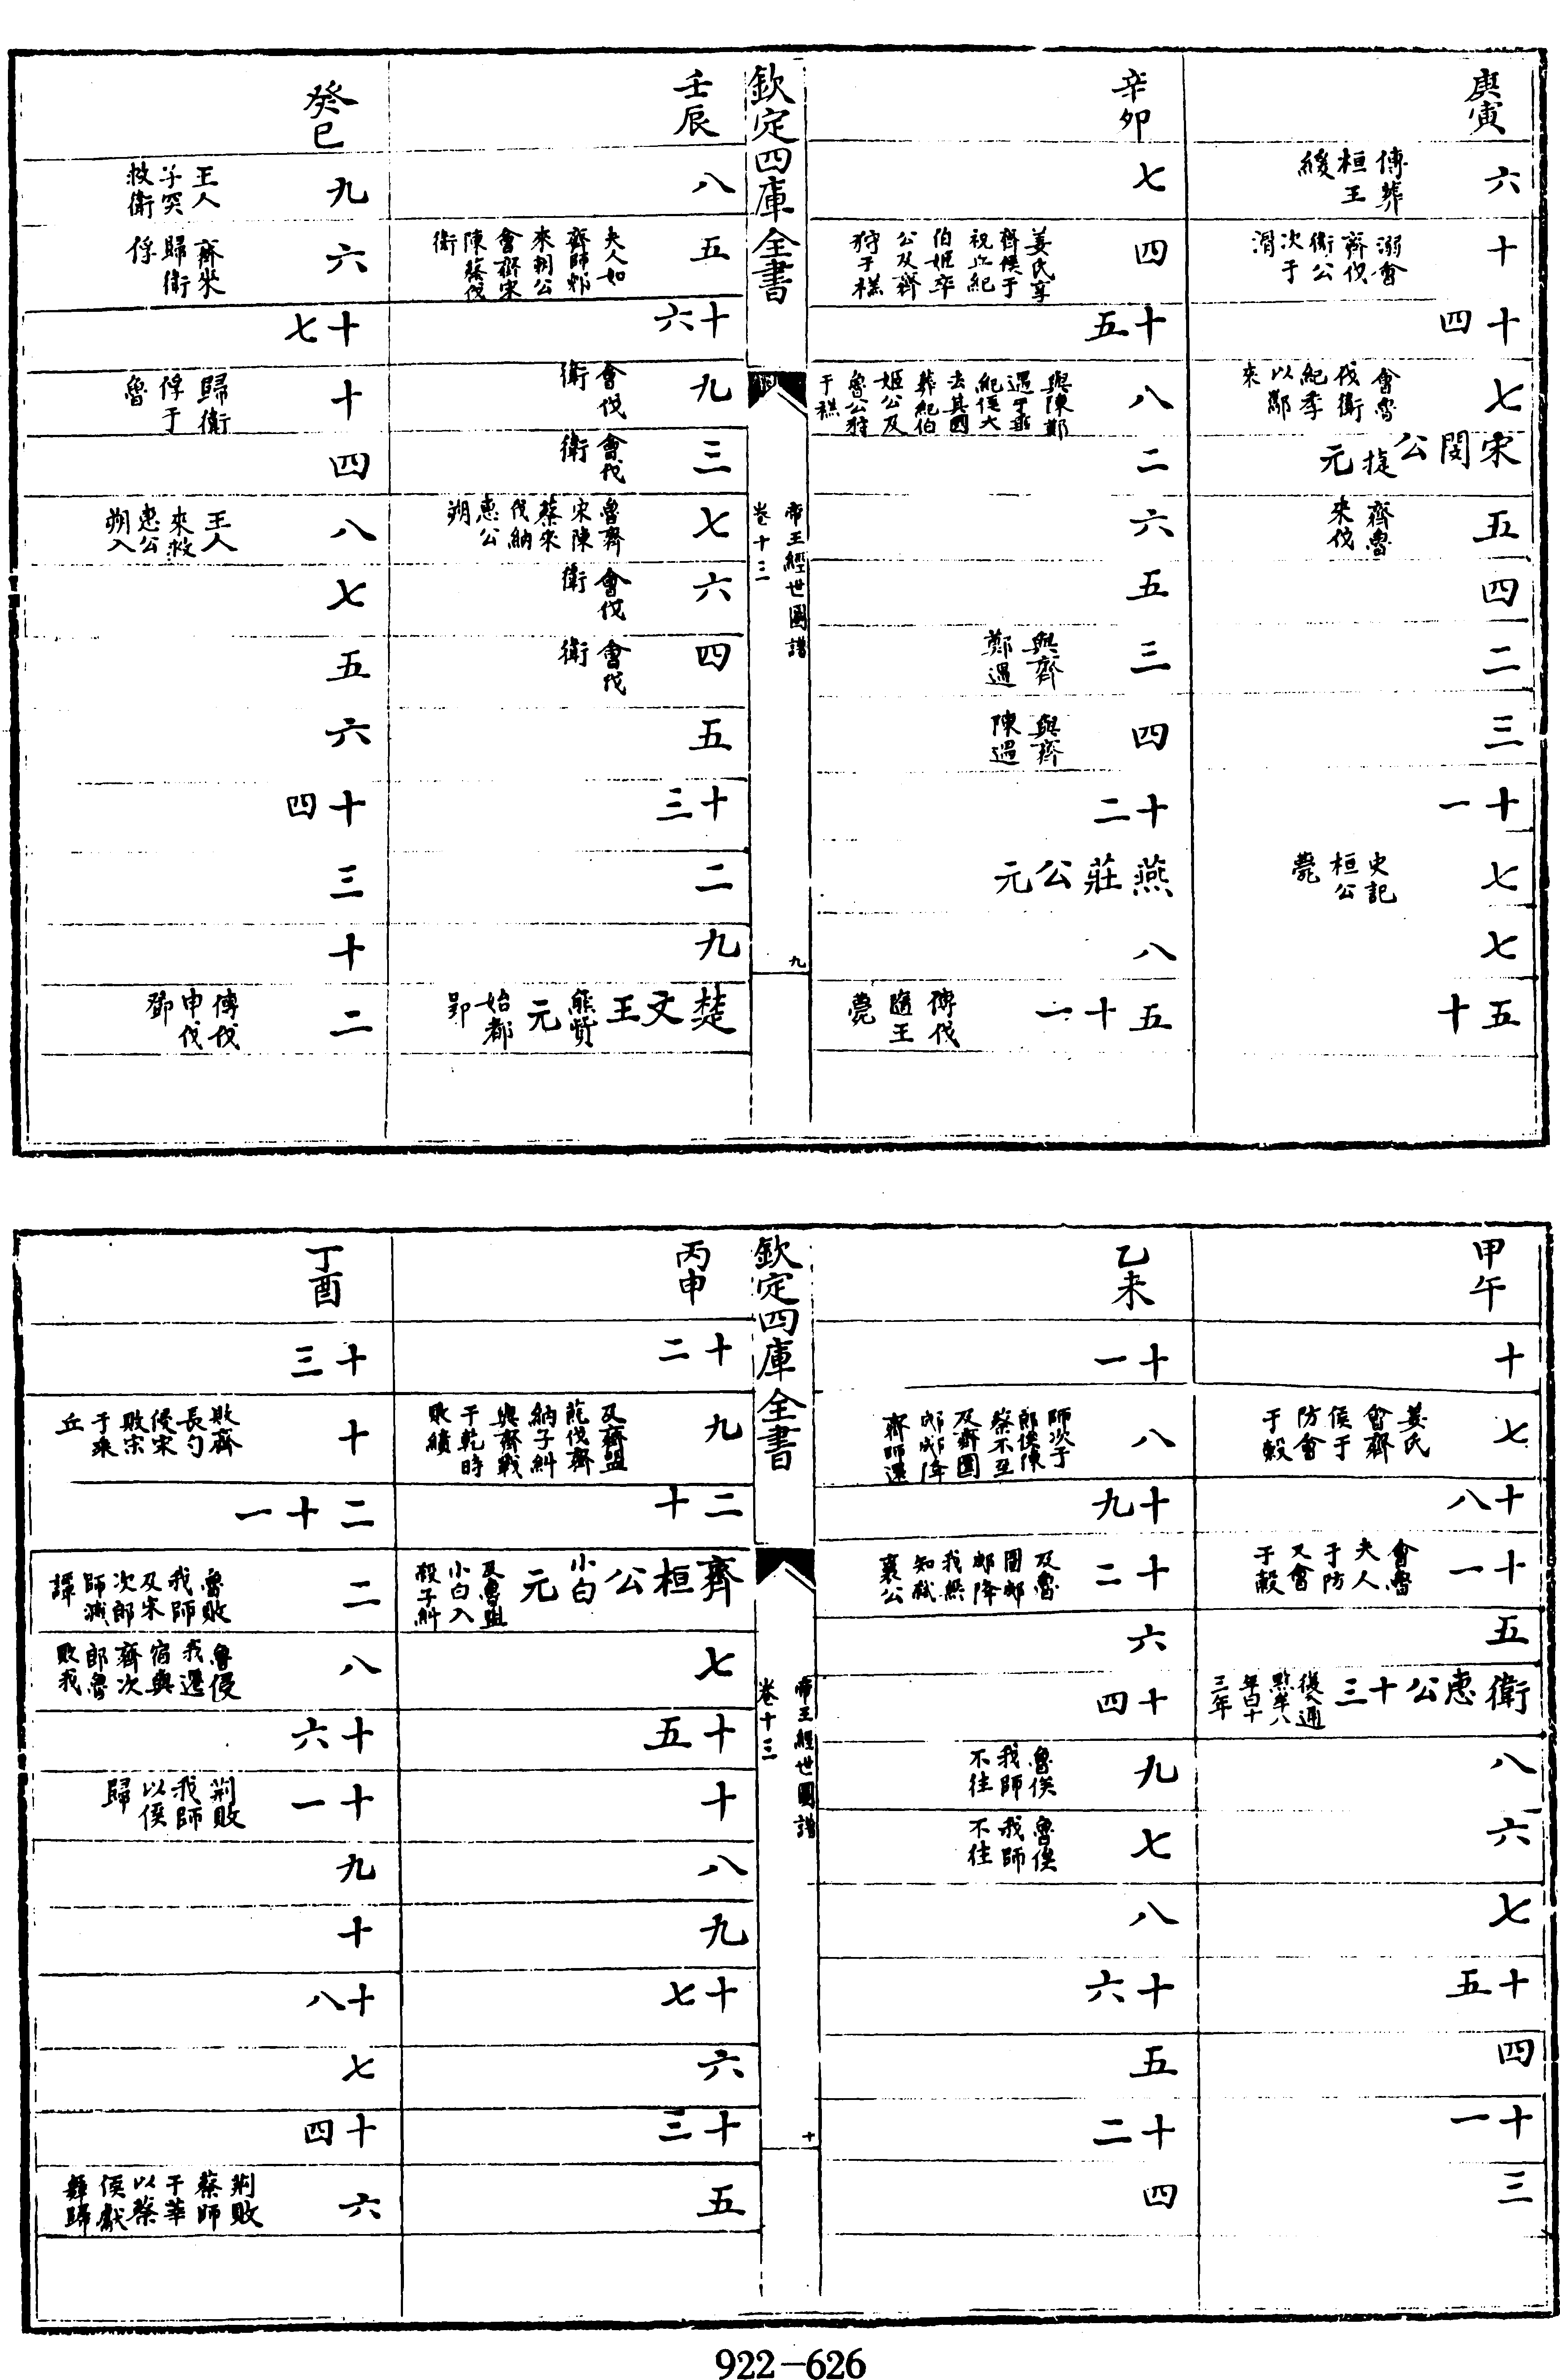 庚寅
六 傳葬桓王緩
十 溺會齊伐衛公次于滑
十四
七 會魯伐衛紀季以酅來
宋閔公捷元
五 齊魯來伐
四
二
三
十一
七 史記桓公薨
七
五十
辛卯
七
四 姜氏享齊侯于祝丘紀伯姬卒公及齊狩于禚
十五
八 與陳鄭遇于垂紀侯大去其國葬紀伯姬公及魯公狩于禚
二
六
五
三 與齊鄭遇
四 與齊陳遇
十二
燕莊公元
八
五十一 傳伐隨王薨
欽定四庫全書
帝王經世圖譜
卷十三
九
壬辰
八
五 夫人如齊師郳來朝公會齊宋陳蔡伐衛
十六
九 會伐衛
三 會伐衛
七 魯齊宋陳蔡來伐納惠公朔
六 會伐衛
四 會伐衛
五
十三
二
九
楚文王熊貲元 始都郢
癸巳
九 王人子突救衛
六 齊來歸衛俘
十七
十 歸衛俘于魯
四
八 王人來救惠公朔入
七
五
六
十四
三
十
二 傳伐申伐鄧
甲午
十
七 姜氏會齊侯于防會于穀
十八
十一 會魯夫人于防又會于穀
五
衛惠公十三 復入通黔牟八年曰十三年
八
六
七
十五
四
十一
三
乙未
十一
八 師次于郎俟陳蔡不至及齊圍郕郕降齊師還
十九
十二 及魯圍郕郕降我無知弒襄公
六
十四
九 魯俟我師不往
七 魯俟我師不往
八
十六
五
十二
四
欽定四庫全書
帝王經世圖譜
卷十三
十
丙申
十二
九 及齊盟蔇伐齊納子糾與齊戰于乾時敗績
二十
齊桓公小白元 及魯盟小白入殺子糾
七
十五
十
八
九
十七
六
十三
五
丁酉
十三
十 敗齊長勺侵宋敗宋于乘丘
二十一
二 魯敗我師及宋次郎師滅譚
八 魯侵我遷宿與齊次郎魯敗我
十六
十一 荆敗我師以侯歸
九
十
十八
七
十四
六 荆敗蔡師于莘以蔡侯獻舞歸
922-626